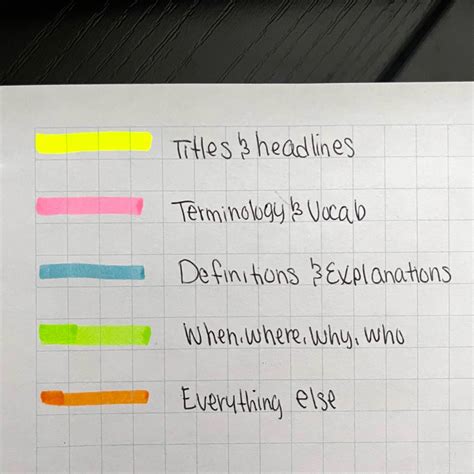 Titles & headlines
Terminology & Vocab
Definitions & Explanations
When, where, why, who
Everything else